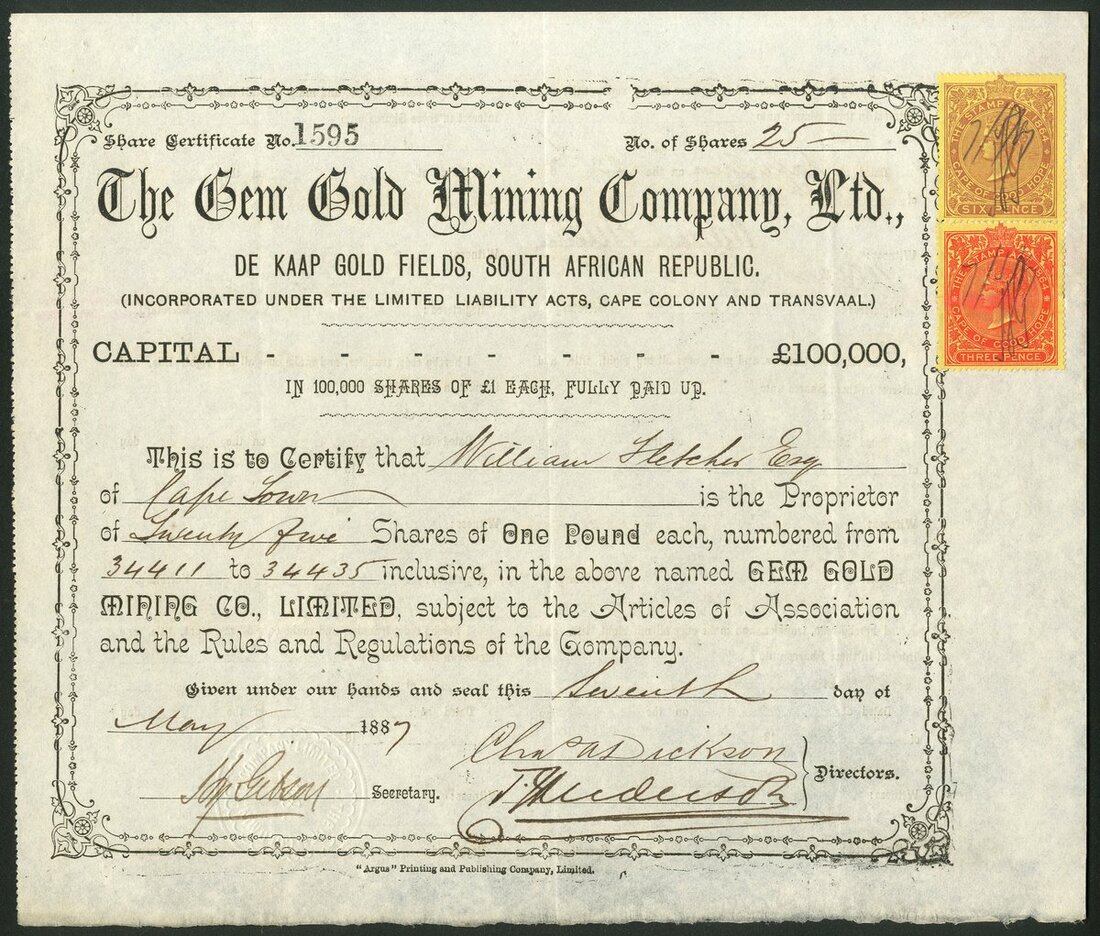 Share Certificate No. 1595 No. of Shares 25
The Gem Gold Mining Company, Ltd.,
DE KAAP GOLD FIELDS, SOUTH AFRICAN REPUBLIC.
(INCORPORATED UNDER THE LIMITED LIABILITY ACTS, CAPE COLONY AND TRANSVAAL.)
CAPITAL - - - - - - - £100,000,
IN 100,000 SHARES OF £1 EACH, FULLY PAID UP.
This is to Certify that William Fletcher Esq
of Cape Town is the Proprietor
of Twenty five Shares of One Pound each, numbered from
34411 to 34435 inclusive, in the above named GEM GOLD
MINING CO., LIMITED, subject to the Articles of Association
and the Rules and Regulations of the Company.
Given under our hands and seal this Seventh day of
May 1887
Chas A Dickson
Gibson Secretary. Henderson Directors.
"Argus" Printing and Publishing Company, Limited.
THE STAMP ACT 1864
CAPE OF GOOD HOPE
SIX PENCE
THE STAMP ACT 1864
CAPE OF GOOD HOPE
THREE PENCE